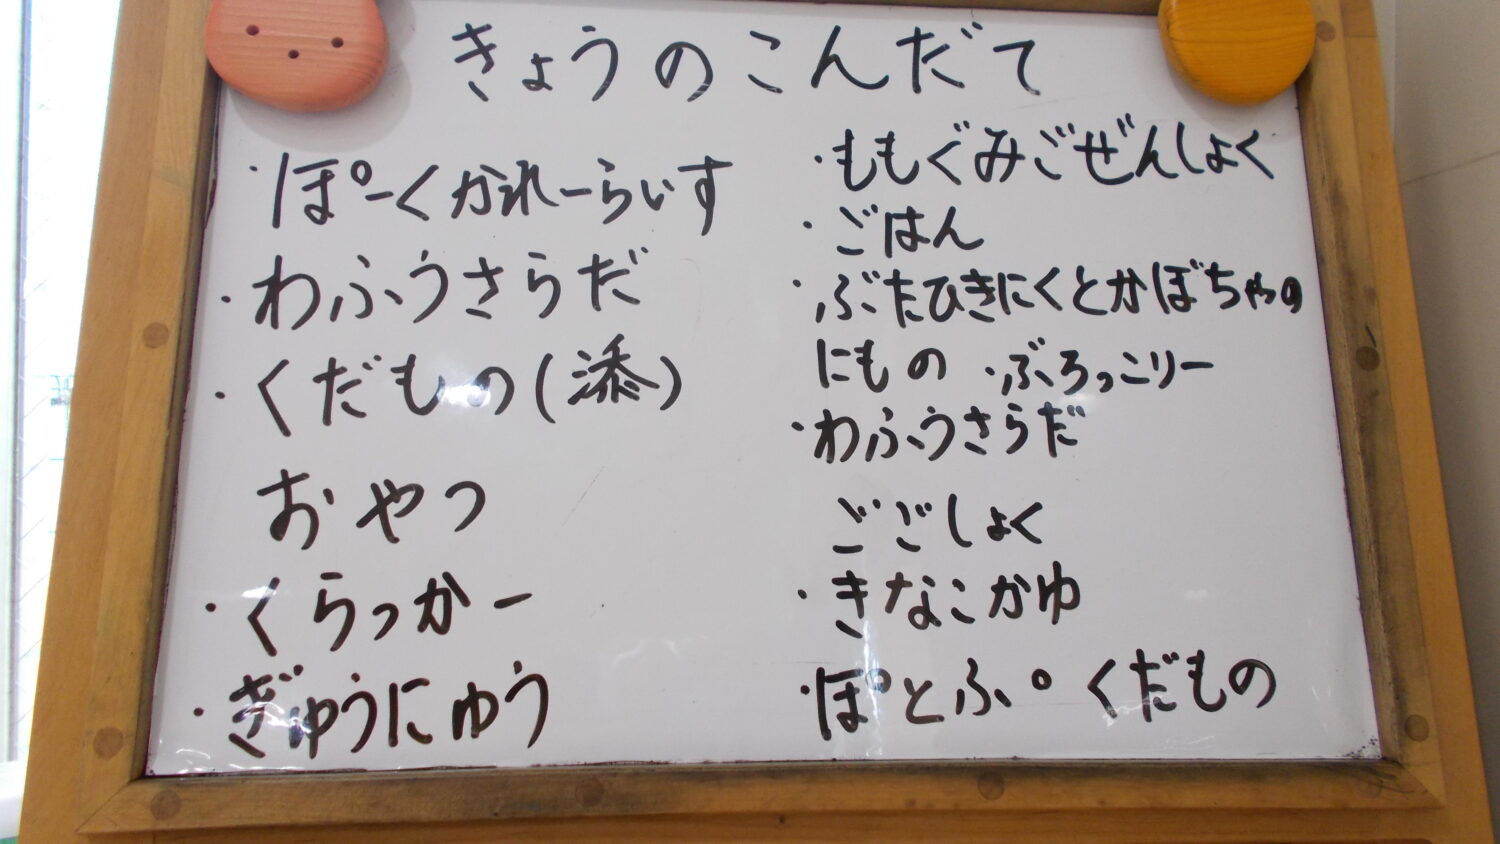 きょうのこんだて
・ぽーくかれーらいす
・わふうさらだ
・くだもの(添)
おやつ
・くらっかー
・ぎゅうにゅう
・ももぐみごぜんしょく
・ごはん
・ぶたひきにくとかぼちゃの
にもの ・ぶろっこりー
・わふうさらだ
ごごしょく
・きなこかゆ
・ぽとふ。くだもの